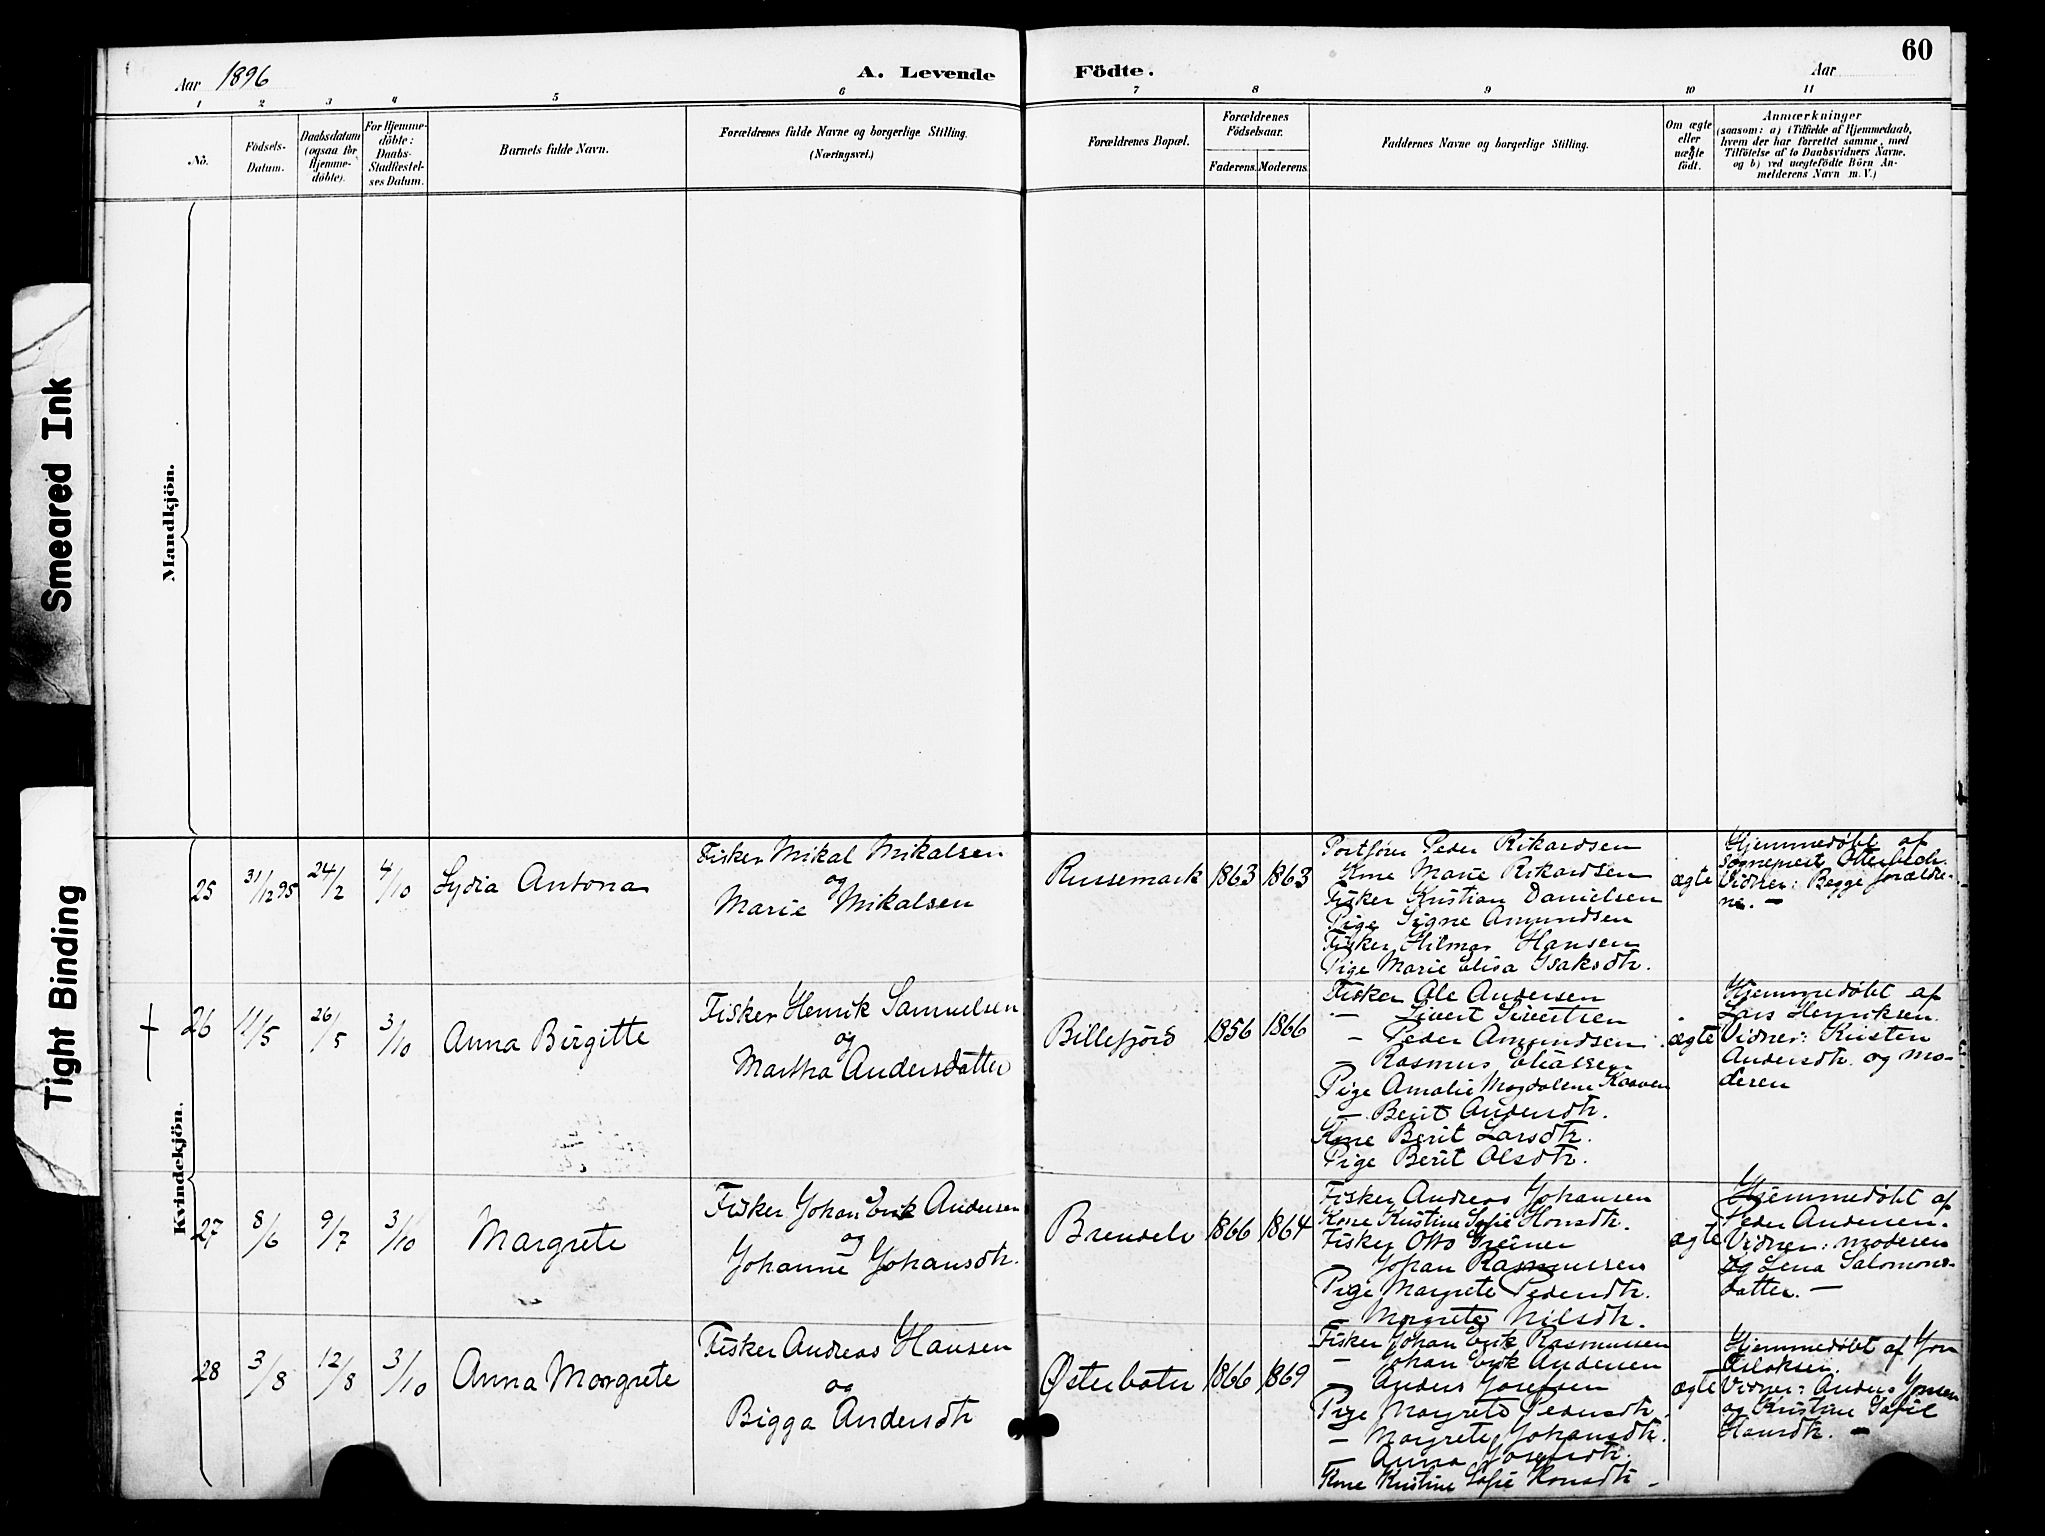 60
Aar 1896
A. Levende
Födte.
Aar
1 2 3 4 5 6 7 8 9 10 11
No.
Födsels-
Datum.
Daabsdatum
(ogsaa for
Hjemme-
döbte).
For Hjemme-
döbte:
Daabs-
Stadfæstel-
ses Datum.
Barnets fulde Navn.
Forældrenes fulde Navne og borgerlige Stilling.
(Næringsvei.)
Forældrenes Bopæl.
Forældrenes
Födselsaar.
Faderens. Moderens.
Faddernes Navne og borgerlige Stilling.
Om ægte
eller
uægte
födt.
Anmærkninger
(saasom: a) i Tilfælde af Hjemmedaab,
hvem der har forrettet samme, med
Tilföielse af to Daabsvidners Navne,
og b) ved uægtefödte Börn An-
melderens Navn m. V.)
Mandkjön.
Kvindekjön.
Smeared Ink
Tight Binding
25
31/12 95
24/2
4/10
Lydia Antona
Fisker Mikal Mikalsen
og
Marie Mikalsen
Russemark
1863
1863
Peder Rikardsen
Kone Marie Rikardsen
Fisker Kristian Danielsen
Pige Signe Amundsen
Fisker Hilmar Hansen
Pige Marie Elisa Isaksdtr.
ægte
Hjemmedøbt af
sogneprest Otterbech.
Vidner: Begge forældre-
ne. —
26
11/5
26/5
3/10
Anna Birgitte
Fisker Henrik Samuelsen
og
Martha Andersdatter
Billefjord
1856
1866
Fisker Ole Andersen
— Sivert Sivertsen
— Peder Amundsen
— Rasmus Eliassen
Pige Amalie Magdalene Kaaven
— Berit Andersdtr.
Kone Berit Larsdtr.
Pige Berit Olsdtr.
ægte
Hjemmedøbt af
Lars Henriksen.
Vidner: Kristen
Andersdtr. og mo-
deren
27
8/6
9/7
3/10
Margrete
Fisker Johan Erik Andersen
og
Johanne Johansdtr.
Brendelv
1866
1864
Fisker Andreas Johansen
Kone Kristine Sofie Hansdtr.
Fisker Otto Greiner
Johan Rasmussen
Pige Margrete Pedersdtr.
— Margrete Nilsdtr.
ægte
Hjemmedøbt af
Peder Andersen.
Vidner: moderen
og Lena Salomons-
datter. —
28
3/8
12/8
3/10
Anna Margrete
Fisker Andreas Hansen
og
Bigga Andersdtr
Østerbotn
1866
1869
Fisker Johan Erik Rasmussen
— Johan Erik Andersen
— Anders Josefsen
Pige Margrete Pedersdtr.
— Margrete Johansdtr.
— Anna Josefsdtr.
Kone Kristine Sofie Hansdtr —
ægte
Hjemmedøbt af Jon
Vidner: Anders Jonsen
og Kristine Sofie
Hansdtr. —